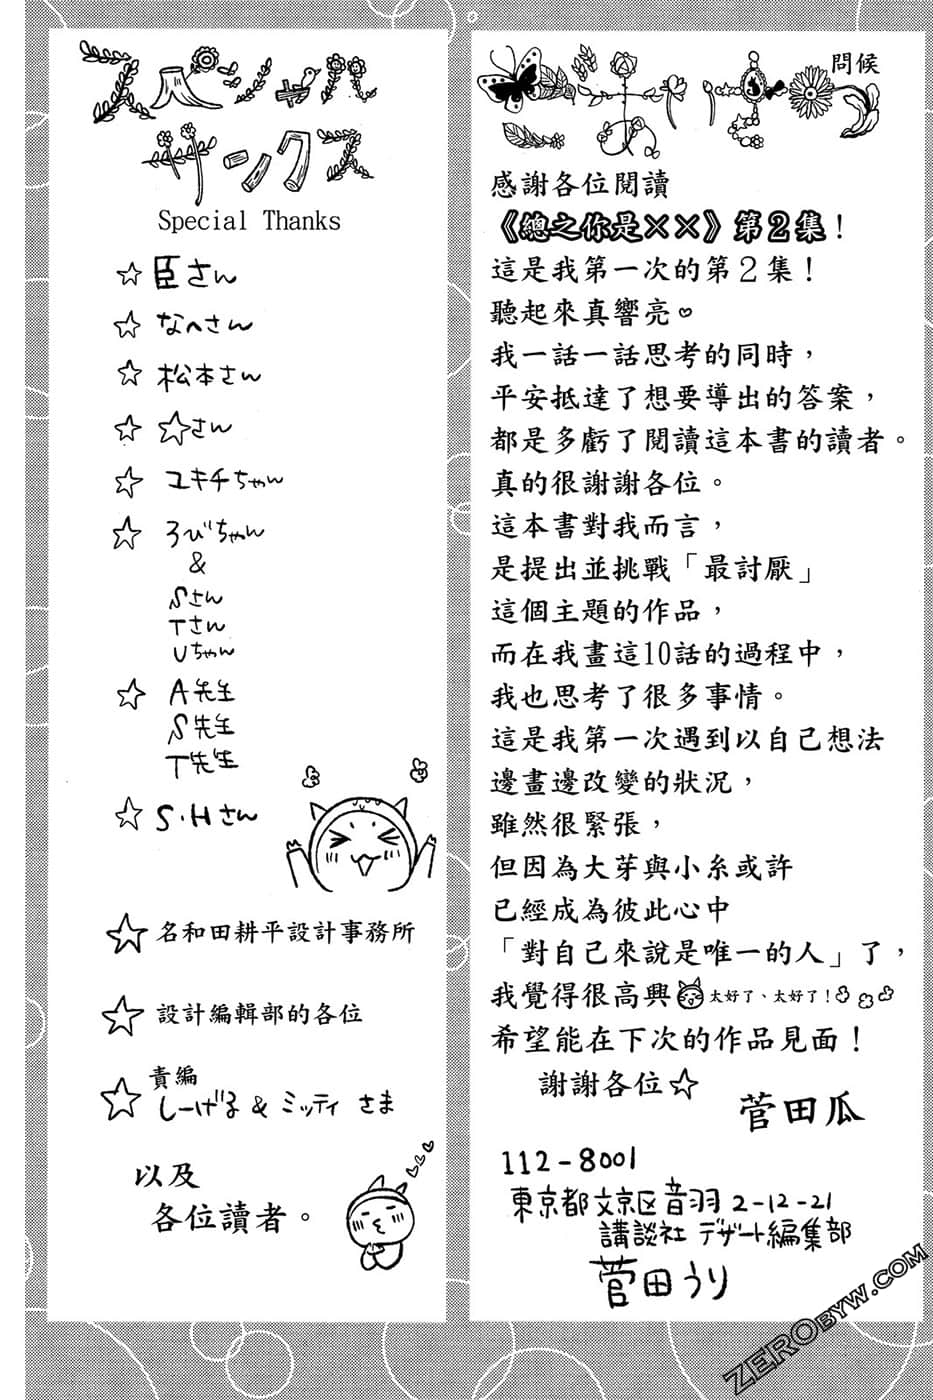 ごあいさつ
問候
感謝各位閱讀
《總之你是××》第2集！
這是我第一次的第2集！
聽起來真響亮♡
我一話一話思考的同時，
平安抵達了想要導出的答案，
都是多虧了閱讀這本書的讀者。
真的很謝謝各位。
這本書對我而言，
是提出並挑戰「最討厭」
這個主題的作品，
而在我畫這10話的過程中，
我也思考了很多事情。
這是我第一次遇到以自己想法
邊畫邊改變的狀況，
雖然很緊張，
但因為大芽與小糸或許
已經成為彼此心中
「對自己來說是唯一的人」了，
我覺得很高興 太好了、太好了！
希望能在下次的作品見面！
謝謝各位☆
菅田瓜
112-8001
東京都文京区音羽2-12-21
講談社 デザート編集部
菅田うり
スペシャル
サンクス
Special Thanks
☆ 臣さん
☆ なへさん
☆ 松本さん
☆ ☆さん
☆ ユキチちゃん
☆ ろびちゃん
&
Sさん
Tさん
Uちゃん
☆ A先生
S先生
T先生
☆ S・Hさん
☆ 名和田耕平設計事務所
☆ 設計編輯部的各位
責編
☆ しーげる & ミッティ さま
以及
各位讀者。
ZEROBYW.COM